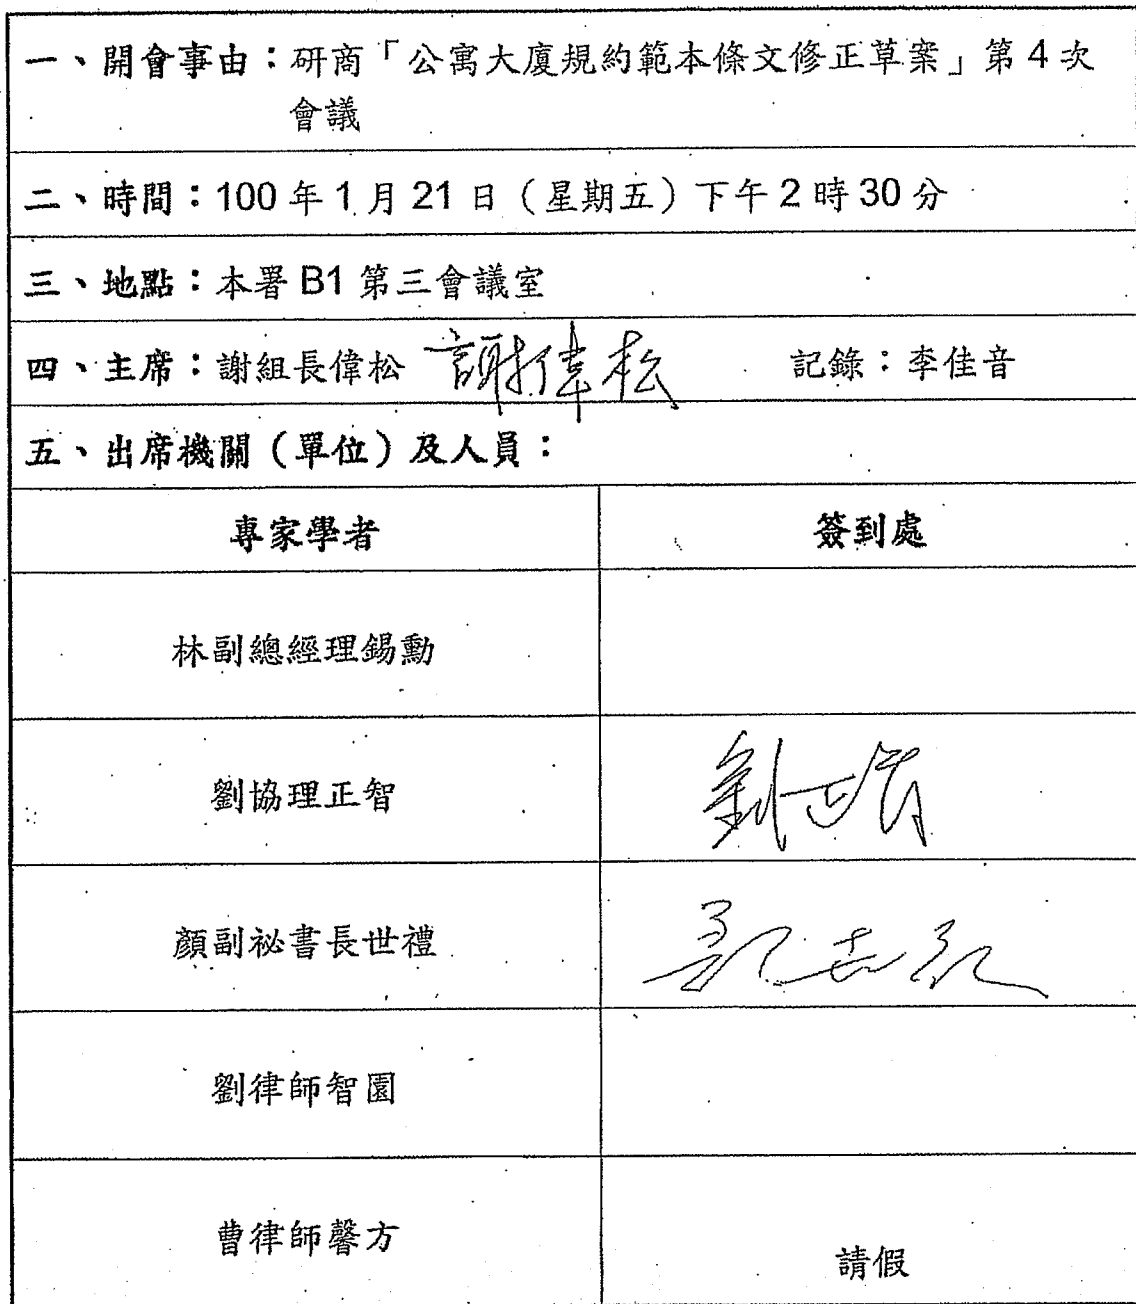 一、開會事由：研商「公寓大廈規約範本條文修正草案」第4次
會議
二、時間：100年1月21日（星期五）下午2時30分
三、地點：本署B1第三會議室
四、主席：謝組長偉松 謝偉松 記錄：李佳音
五、出席機關（單位）及人員：
專家學者 簽到處
林副總經理錫勳
劉協理正智 劉正智
顏副祕書長世禮
劉律師智園
曹律師馨方 請假